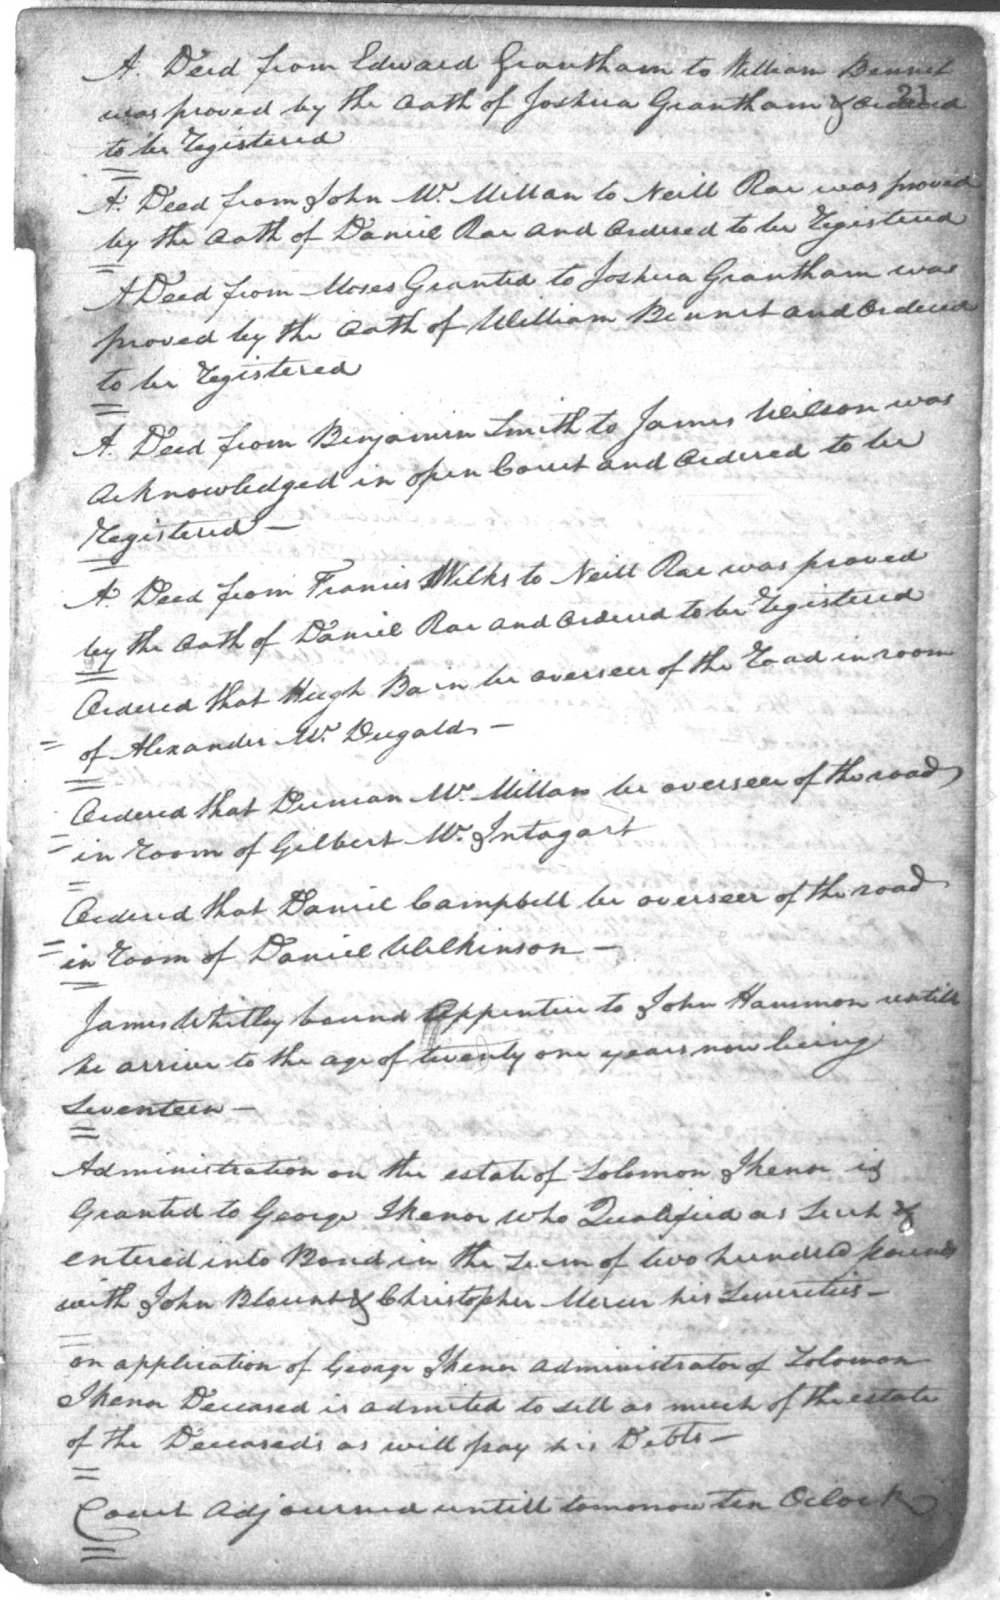 21
A. Deed from Edward Grantham to William Bennet
was proved by the oath of Joshua Grantham & ordered
to be Registered
A. Deed from John Mc. Millan to Neill Rae was proved
by the oath of Daniel Rae and ordered to be Registered
A Deed from Moses Granted to Joshua Grantham was
proved by the oath of William Bennet and ordered
to be Registered
A. Deed from Benjamin Smith to James Wilson was
acknowledged in open Court and ordered to be
Registered —
A. Deed from Francis Wilks to Neill Rae was proved
by the oath of Daniel Rae and ordered to be Registered
Ordered that Hugh Bain be overseer of the Road in room
of Alexander Mc. Dugald —
Ordered that Duncan Mc. Millan be overseer of the road
in Room of Gilbert Mc. Intagart
Ordered that Daniel Campbell be overseer of the road
in Room of Daniel Wilkinson —
James Whitley bound Appentice to John Hammon untill
he arrive to the age of twenty one years now being
Seventeen —
Administration on the estate of Solomon Ikenor is
Granted to George Ikenor who Qualified as Such &
entered into Bond in the Sum of two hundred pounds
with John Blount & Christopher Mercer his Sureties —
on application of George Ikener administrator of Solomon
Ikenor Deceased is admited to sell as much of the estate
of the Deceaseds as will pay his Debts —
Court adjourned untill tomorrow ten Oclock